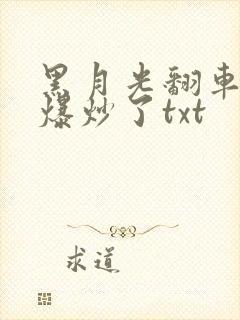 黑月光翻車
爆炒了txt
求道